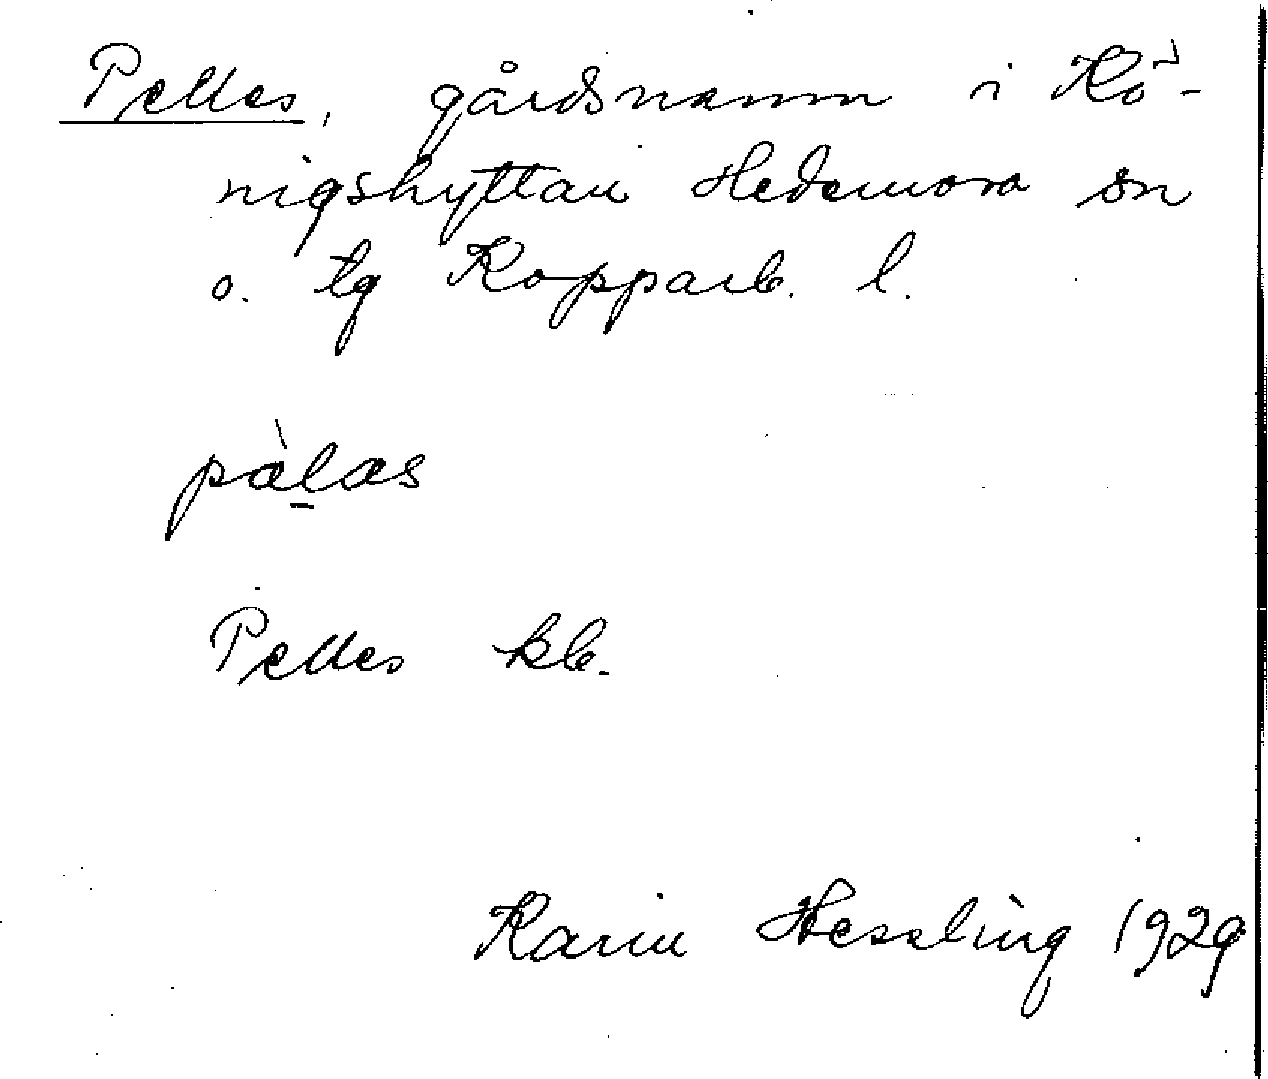 Pelles, gårdsnamn i Kö-
nigshyttan Hedemora sn
o. tg Kopparb. l.
pæ̀l̠æs
Pelles kb.
Karin Hessling 1929